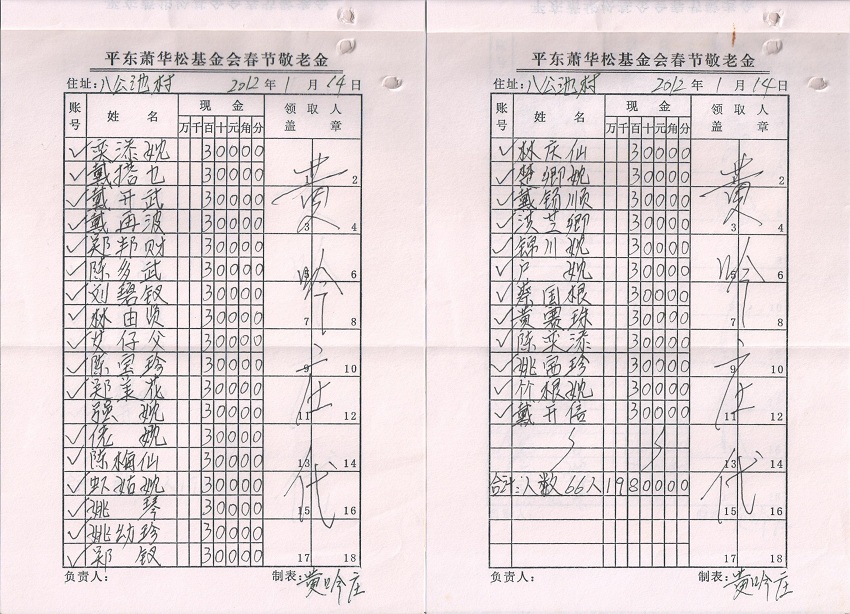 平东萧华松基金会春节敬老金
住址:八公池村 2012年1月14日
账号 姓名 现金 领取人盖章
万千百十元角分
✓ 栾添婗 30000
✓ 戴搭也 30000 2
✓ 戴开武 30000
✓ 戴再波 30000 3 4
✓ 郑邦财 30000
✓ 陈多武 30000 5 6
✓ 刘碧钗 30000
✓ 林由贤 30000 7 8
✓ 女仔父 30000
✓ 陈宝珍 30000 9 10
✓ 郑美花 30000
强婗 30000 11 12
✓ 婗 30000
✓ 陈梅仙 30000 13 14
✓ 虾姑婗 30000
✓ 姚琴 30000 15 16
✓ 姚幼珍 30000
✓ 郑钗 30000 17 18
黄吟庄代
负责人: 制表:黄吟庄
平东萧华松基金会春节敬老金
住址:八公池村 2012年1月14日
账号 姓名 现金 领取人盖章
万千百十元角分
✓ 林庆仙 30000
✓ 卿婗 30000 2
✓ 戴锡顺 30000
✓ 淇芝卿 30000 3 4
✓ 锦川婗 30000
✓ 户婗 30000 5 6
✓ 蔡国根 30000
✓ 黄露珠 30000 7 8
✓ 陈栾添 30000
✓ 姚宝珍 30000 9 10
✓ 竹根婗 30000
✓ 戴开信 30000 11 12
13 14
合计:人数66人 1980000
15 16
17 18
黄吟庄代
负责人: 制表:黄吟庄